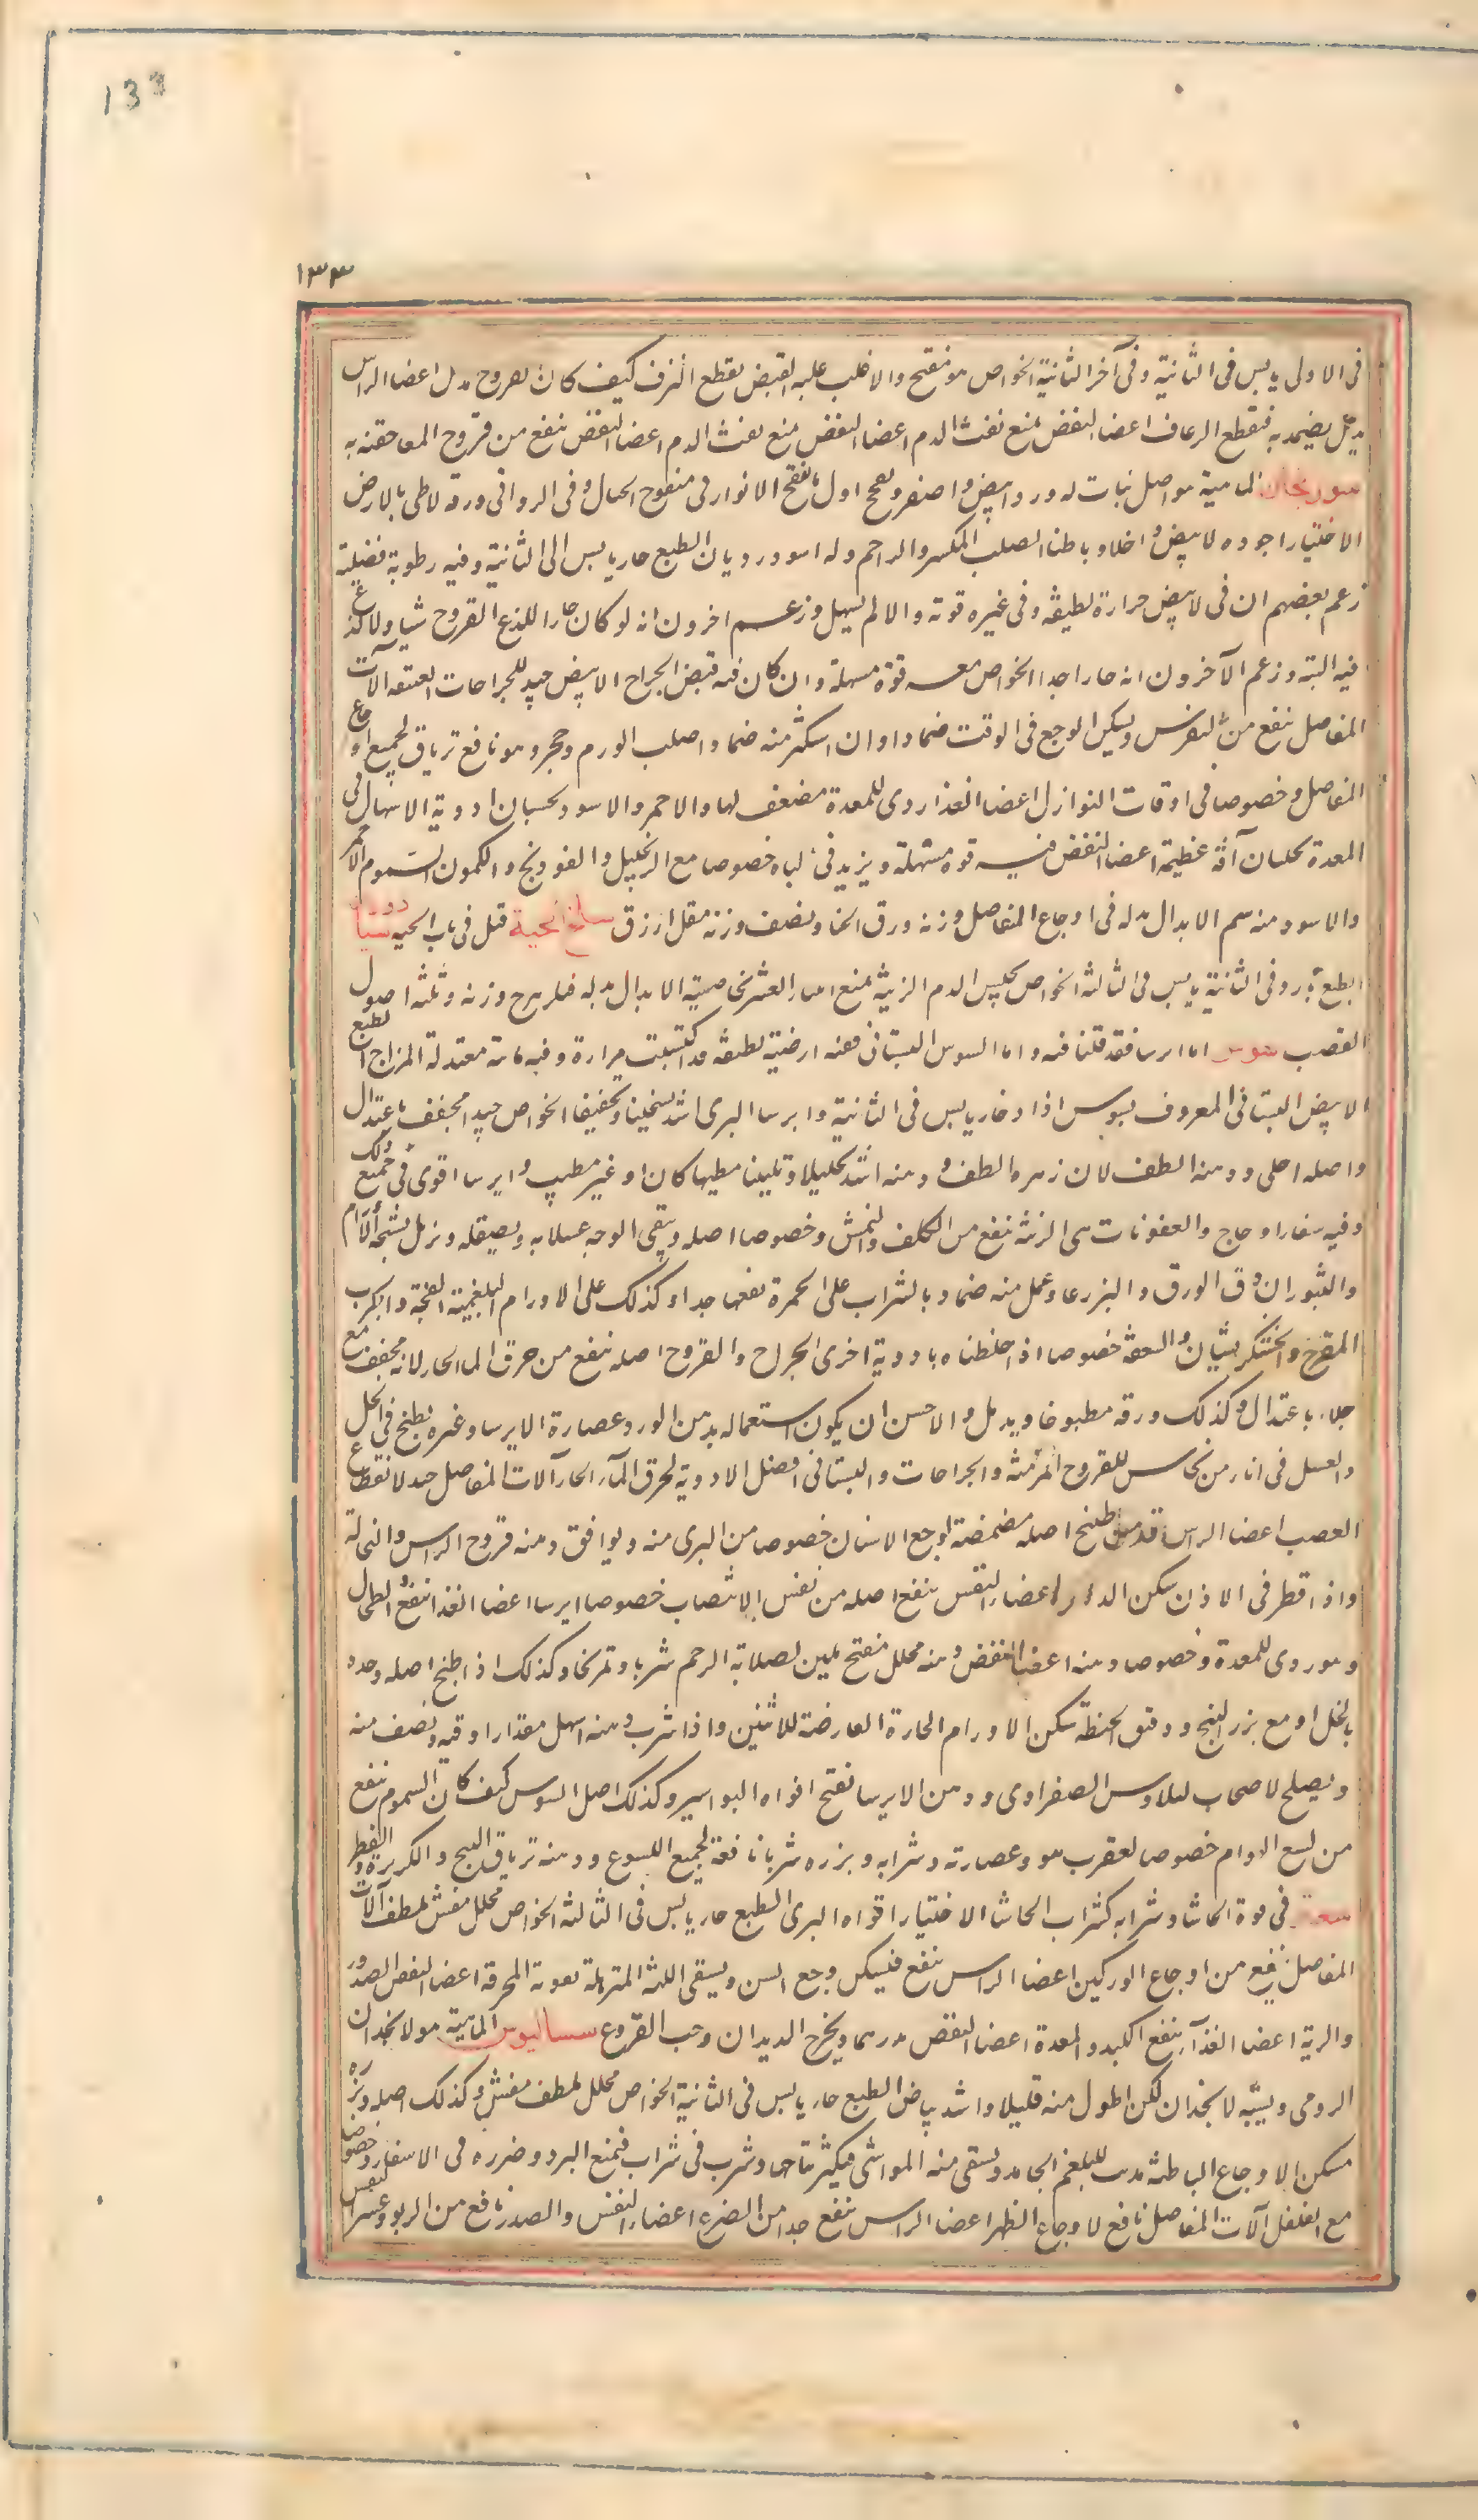 133
١٣٣
فى الاولى يابس فى الثانية وفى آخر الثانية الخواص هو مفتح والاغلب عليه القبض يقطع النزف كيف كان القروح يدمل اعضا الراس
يضمد به فيقطع الرعاف اعضا النفض يمنع نفث الدم اعضا النفض يمنع نفث الدم اعضا النفض ينفع من قروح المعا حقنة به
سورنجان الماهية هو اصل نبات له ورد ابيض واصفر ويفتح اول ما يفتح الانوار فى سفوح الجبال وفى الروابى ورقه لاطى بالارض
الاختيار اجوده الابيض واخلا وباطنا الصلب المكسر والاحمر وله اسود رديان الطبع حار يابس الى الثانية وفيه رطوبة فضلية
زعم بعضهم ان فى الابيض حرارة لطيفة وفى غيره قوته والا لم يسهل وزعم اخرون انه لو كان حارا للذع القروح شيا ولا لذع
فيه البتة وزعم الآخرون انه حار جدا الخواص معه قوة مسهلة وان كان فيه قبض الجراح الابيض جيد للجراحات العتيقة آلات
المفاصل ينفع من النقرس ويسكن الوجع فى الوقت ضمادا وان استكثر منه ضمادا صلب الورم وحجره وهو نافع ترياق لجميع اوجاع
المفاصل وخصوصا فى اوقات النوازل اعضا الغذا ردى للمعدة مضعف لها والاحمر والاسود يحسبان ادوية الاسهال فى
المعدة يجلبان آفة عظيمة اعضا النفض فيه قوة مسهلة ويزيد فى الباه خصوصا مع الزنجبيل والفودنج والكمون السموم الاحمر
والاسود منه سم الابدال بدله فى اوجاع المفاصل وزنه ورق الحنا ونصف وزنه مقل ازرق سلخ الحية قيل فى باب الحية
الطبع بارد فى الثانية يابس فى الثالثة الخواص يحبس الدم الزينة يمنع انتثار الشعر بخاصية الابدال بدله وزنه وثلثه اصول
القصب سوسن اما ايرسا فقد قلنا فيه واما السوسن البستانى ففيه ارضية لطيفة قد اكتسبت مرارة وفيه مائة معتدلة المزاج الطبع
الابيض البستانى المعروف بسوسن ازاد حار يابس فى الثانية وايرسا البرى اشد تسخينا وتجفيفا الخواص جيد مجفف باعتدال
واصله اجلى ودهنه الطف لان زهره الطف ودهنه اشد تحليلا وتليينا مطيبا كان او غير مطيب وايرسا اقوى فى جميع ذلك
وفيه شفا لاوجاع والعفونات هى الزينة ينفع من الكلف والنمش وخصوصا اصله وينقى الوجه غسلا به ويصقله ويزيل تشنجه الاورام
والبثور ان دق الورق والبزر ناعما وعمل منه ضماد بالشراب على الحمرة نفعها جدا وكذلك على الاورام البلغمية الفجة والجرب
المتقرح والخشكريشيات والسعفة خصوصا اذا خلطناه بادوية اخرى الجراح والقروح اصله ينفع من حرق الما الحار لانه مجفف مع
جلاء باعتدال وكذلك ورقه مطبوخا ويدمل والاحسن ان يكون استعماله بدهن الورد وعصارة الايرسا وغيره يطبخ فى الخل
والعسل فى اناء من نحاس للقروح المزمنة والجراحات والبستانى افضل الادوية لحرق الماء الحار آلات المفاصل جيد لانقطاع
العصب اعضا الراس طبيخ اصله مضمضة لوجع الاسنان خصوصا من البرى منه ويوافق دهنه قروح الراس والنخالة
واذا قطر فى الاذن سكن الدوى اعضاء النفس ينفع اصله من نفس الانتصاب خصوصا ايرسا اعضا الغذا ينفع الطحال
وهو ردى للمعدة وخصوصا دهنه اعضا النفض دهنه محلل مفتح ملين لصلابة الرحم شربا وتمريخا وكذلك اذا طبخ اصله وحده
بالخل او مع بزر البنج ودقيق الحنطة سكن الاورام الحارة العارضة للانثيين واذا شرب دهنه اسهل مقدار اوقية ونصف منه
ويصلح لاصحاب ايلاوس الصفراوى ودهن الايرسا يفتح افواه البواسير وكذلك اصل السوسن كيف كان السموم ينفع
من لسع الهوام خصوصا لعقرب هو وعصارته وشرابه وبزره شربا نافعة لجميع اللسوع ودهنه ترياق البنج والكزبرة والفطر
فى قوة الحاشا وشرابه كشراب الحاشا الاختيار اقواه البرى الطبع حار يابس فى الثالثة الخواص محلل مفش ملطف آلات
المفاصل ينفع من اوجاع الوركين اعضا الراس ينفع فيسكن وجع السن ويشفى اللثة المترهلة بقوته المحرقة اعضا النفس الصدور
والرية اعضا الغذاء ينفع الكبد والمعدة اعضا النفض يدر ويخرج الديدان وحب القروع سساليوس الماهية هو لانجدان
الرومى ويشبه لانجدان لكن اطول منه قليلا واشد بياضا الطبع حار يابس فى الثانية الخواص محلل ملطف مفش وكذلك اصله وبزره
مسكن الاوجاع الباطنة مذيب للبلغم الجامد ويسقى منه المواشى فيكثر نتاجها وشرب فى شراب فيمنع البرد وضرره فى الاسفار وخصوصا
مع الفلفل آلات المفاصل نافع لاوجاع الظهر اعضا الراس ينفع جدا من الصرع اعضاء النفس والصدر نافع من الربو وعسر النفس